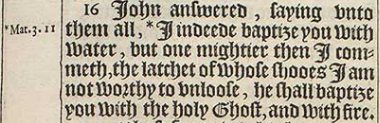 16 John answered, saying vnto
*Mat.3.11
them all, *I indeede baptize you with
water, but one mightier then I com-
meth, the latchet of whose shooes I am
not worthy to vnloose, he shall baptize
you with the holy Ghost, and with fire.